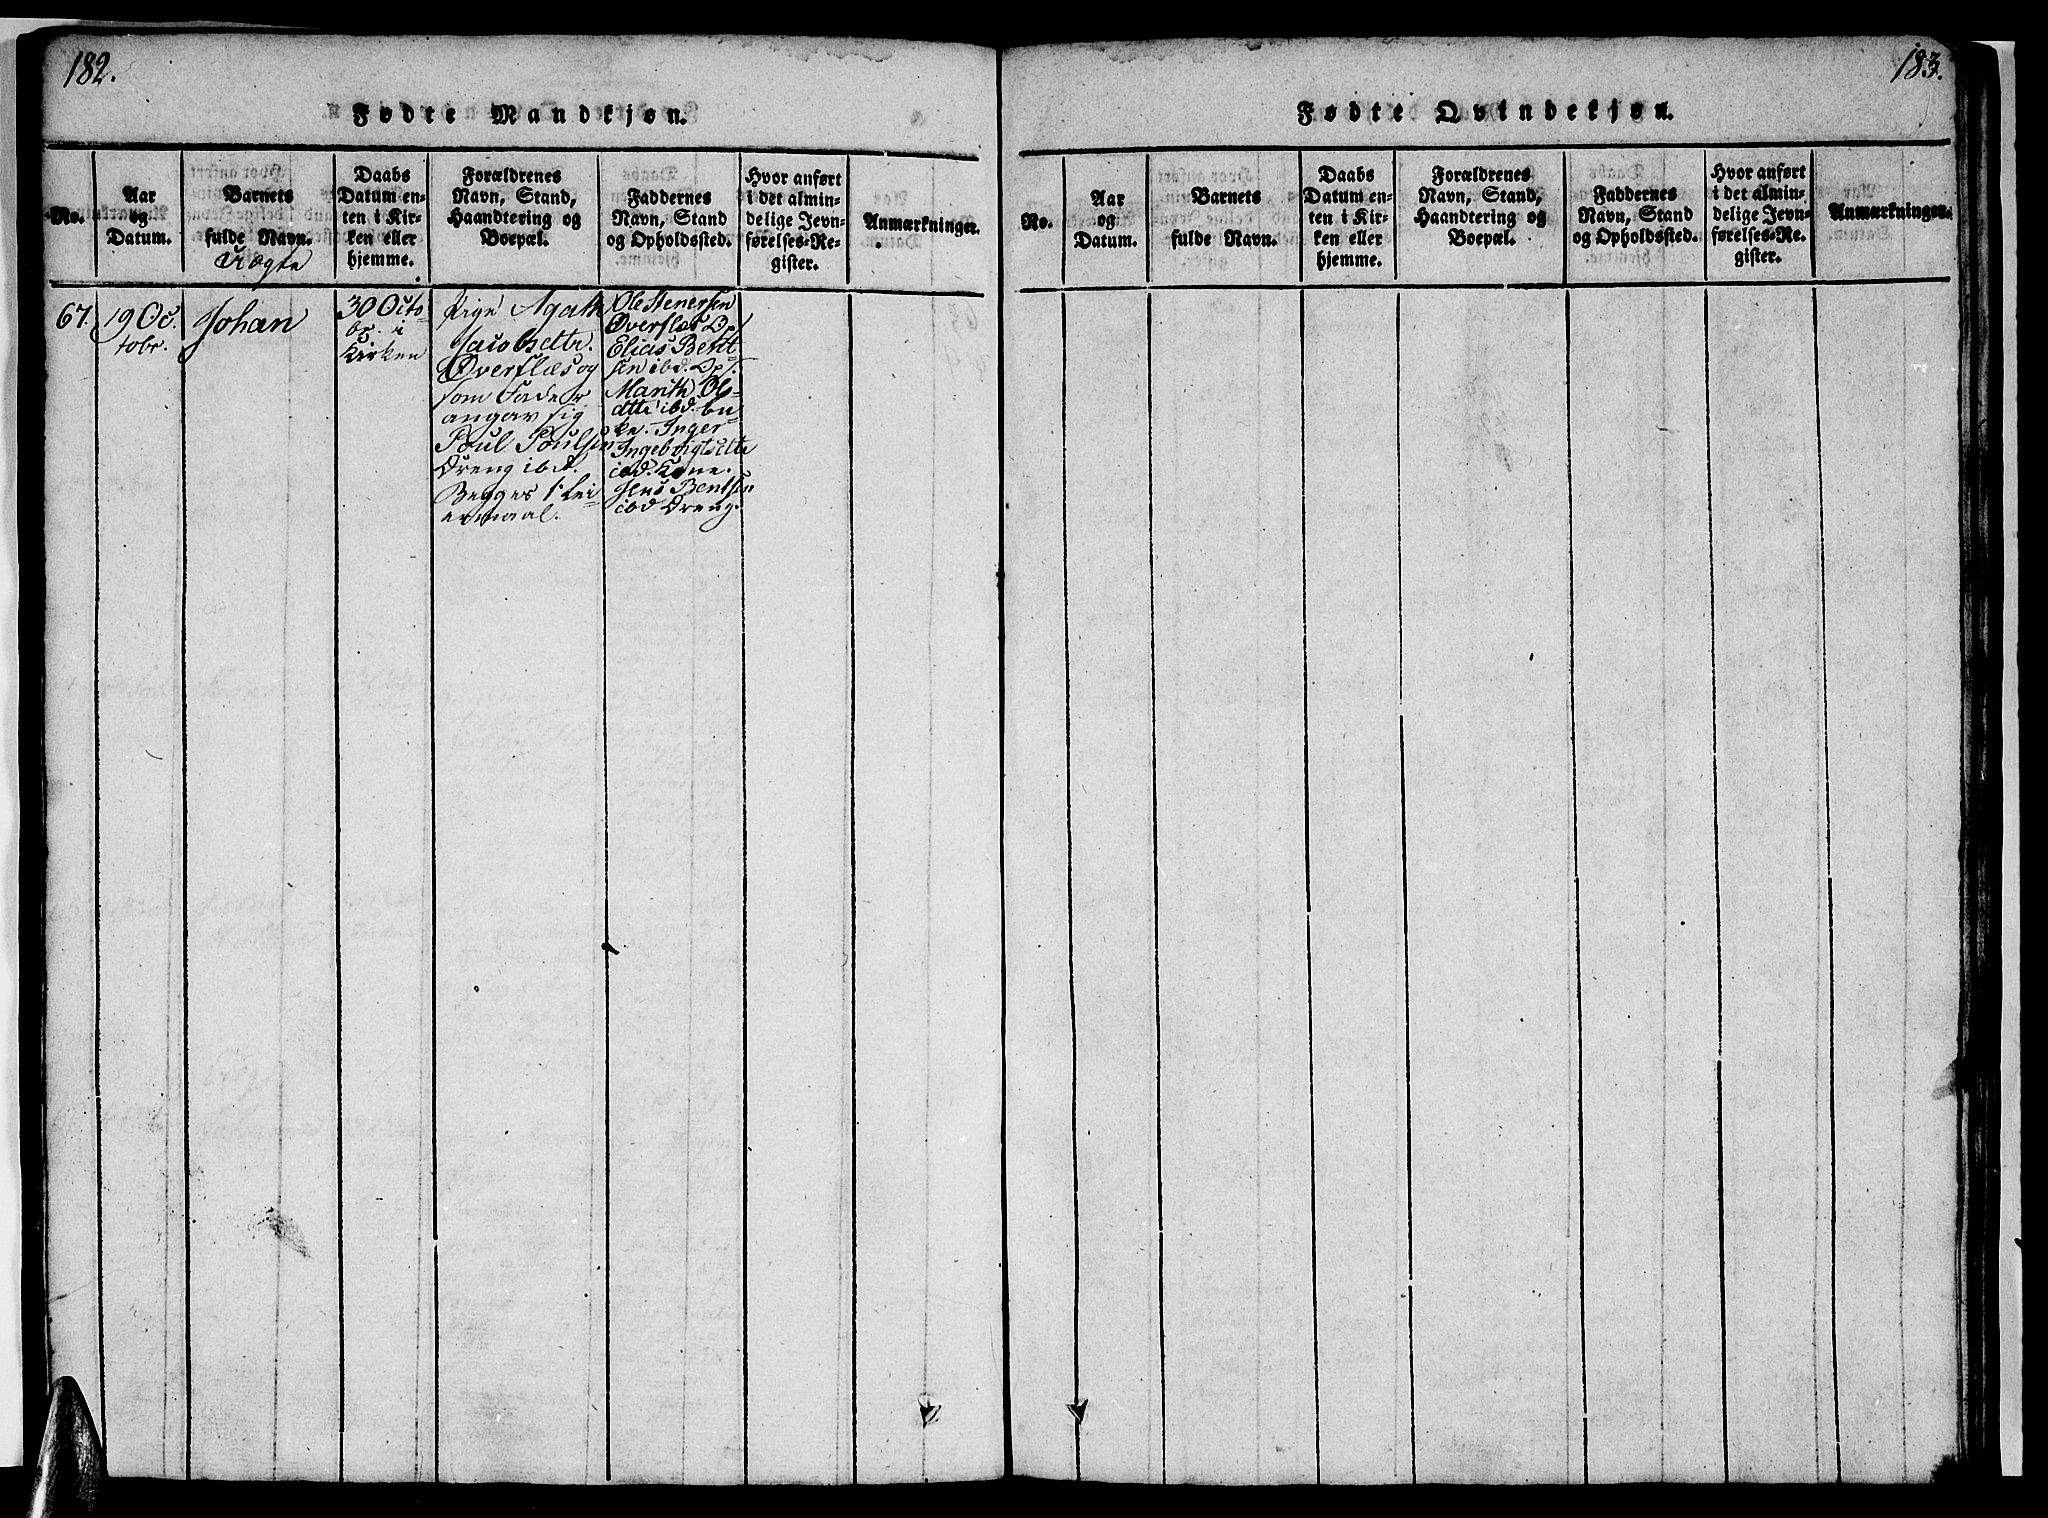 182.
Fødte Mandkjøn.
No.
Aar
og
Datum.
Barnets
fulde Navn.
Uægte
Daabs
Datum en-
ten i Kir-
ken eller
hjemme.
Forældrenes
Navn, Stand,
Haandtering og
Boepæl.
Faddernes
Navn, Stand
og Opholdssted.
Hvor anført
i det almin-
delige Jevn-
førelses-Re-
gister.
Anmærkninger.
67.
19 Oc.
tobr.
Johan
30 Octo-
br. i
Kirken
Pige Agath
Jacobsdttr.
Øverflæs og
som Fader
angav sig
Poul Poulsen
Dreng ibd.
Begges 1. Lei-
ermaal.
Ole Stenersen
Øverflæs
Elias Bent-
sen ibd.
Marith Ols-
dtte ibd. En-
ke. Inger
Ingebrigtsdtte
ibd. Kone.
Jens Bentsen
ibd Dreng.
183.
Fødte Qvindekjøn.
No.
Aar
og
Datum.
Barnets
fulde Navn.
Daabs
Datum en-
ten i Kir-
ken eller
hjemme.
Forældrenes
Navn, Stand,
Haandtering og
Boepæl.
Faddernes
Navn, Stand
og Opholdssted.
Hvor anført
i det almin-
delige Jevn-
førelses-Re-
gister.
Anmærkninger.